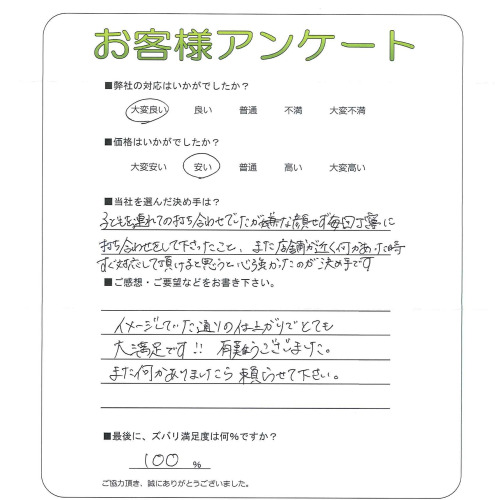 お客様アンケート
■弊社の対応はいかがでしたか?
大変良い 良い 普通 不満 大変不満
■価格はいかがでしたか?
大変安い 安い 普通 高い 大変高い
■当社を選んだ決め手は?
子どもを連れての打ち合わせでしたが嫌な顔せず毎回丁寧に
打ち合わせをして下さったこと、また店舗が近く何かあった時
すぐ対応して頂けると思うと心強かったのが決め手です
■ご感想・ご要望などをお書き下さい。
イメージしていた通りの仕上がりでとても
大満足です!! 有難うございました。
また何かありましたら頼らせて下さい。
■最後に、ズバリ満足度は何%ですか?
100 %
ご協力頂き、誠にありがとうございました。